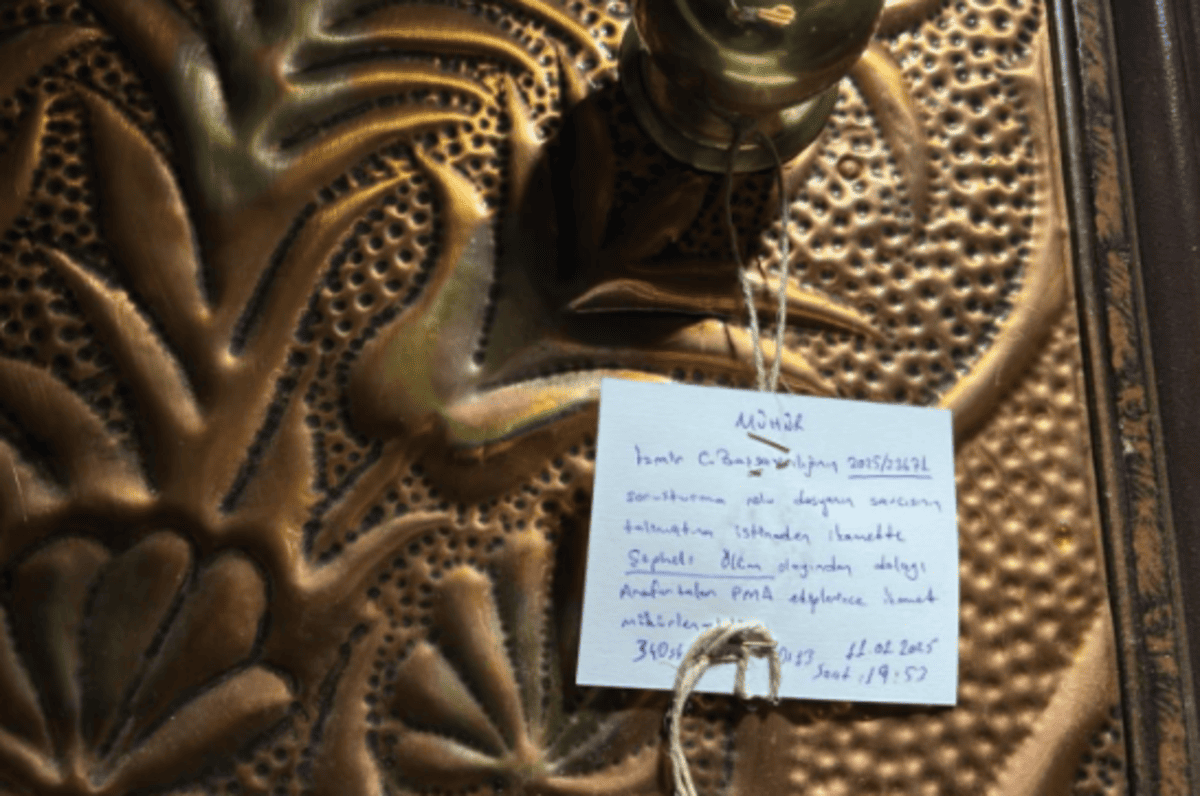 MÜHÜR
İzmir C. Başsavcılığının 2025/
soruşturma nolu dosyanın savcısının
talimatına istinaden ikamette
Şüpheli Ölüm olayından dolayı
Anafartalar PMA ekiplerince ikamet
11.01.2025
Saat : 19:52